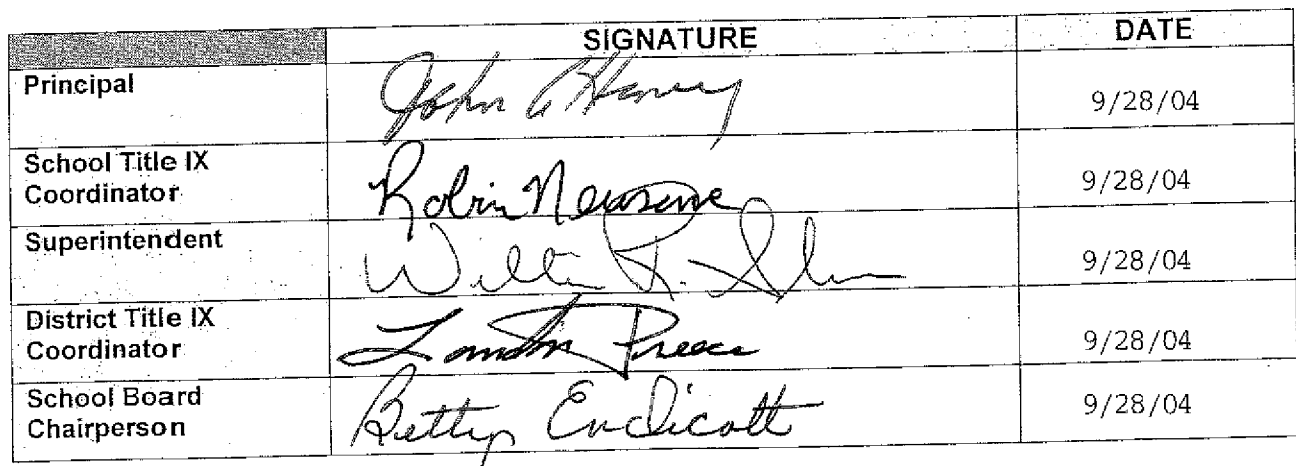 SIGNATURE DATE
Principal John C Harvey 9/28/04
School Title IX
Coordinator Robin Newsome 9/28/04
Superintendent R. 9/28/04
District Title IX
Coordinator Preece 9/28/04
School Board
Chairperson Betty Endicott 9/28/04